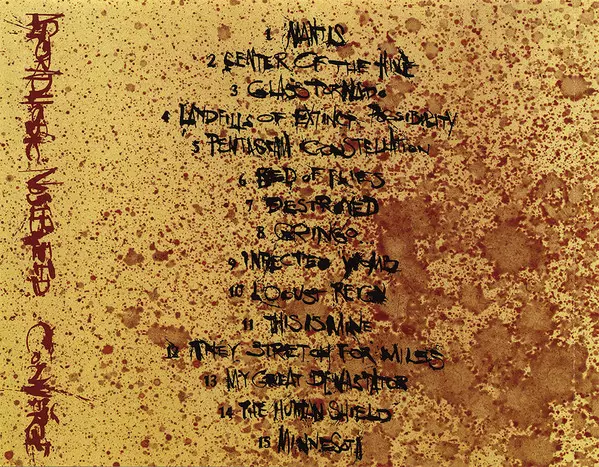 1 MANTIS
2 CENTER OF THE HIVE
3 GLASS TORNADO
4 LANDFILLS OF EXTINCT POSSIBILITY
5 PENTASTAR CONSTELLATION
6 BED OF FLIES
7 DESTROYED
8 GRINGO
9 INFECTED WOMB
10 LOCUST REIGN
11 THIS IS MINE
12 THEY STRETCH FOR MILES
13 MY GREAT DEVASTATOR
14 THE HUMAN SHIELD
15 MINNESOTA
AGORAPHOBIC NOSEBLEED